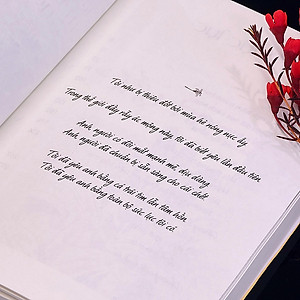 Tôi như bị thiêu đốt bởi mùa hè nóng nực ấy
Trong thế giới đầy rẫy ác mộng này, tôi đã biết yêu lần đầu tiên
Anh, người có đôi mắt mạnh mẽ, dịu dàng
Anh, người đã chuẩn bị sẵn sàng cho cái chết
Tôi đã yêu anh bằng cả trái tim lẫn tâm hồn
Tôi đã yêu anh bằng toàn bộ sức lực tôi có.